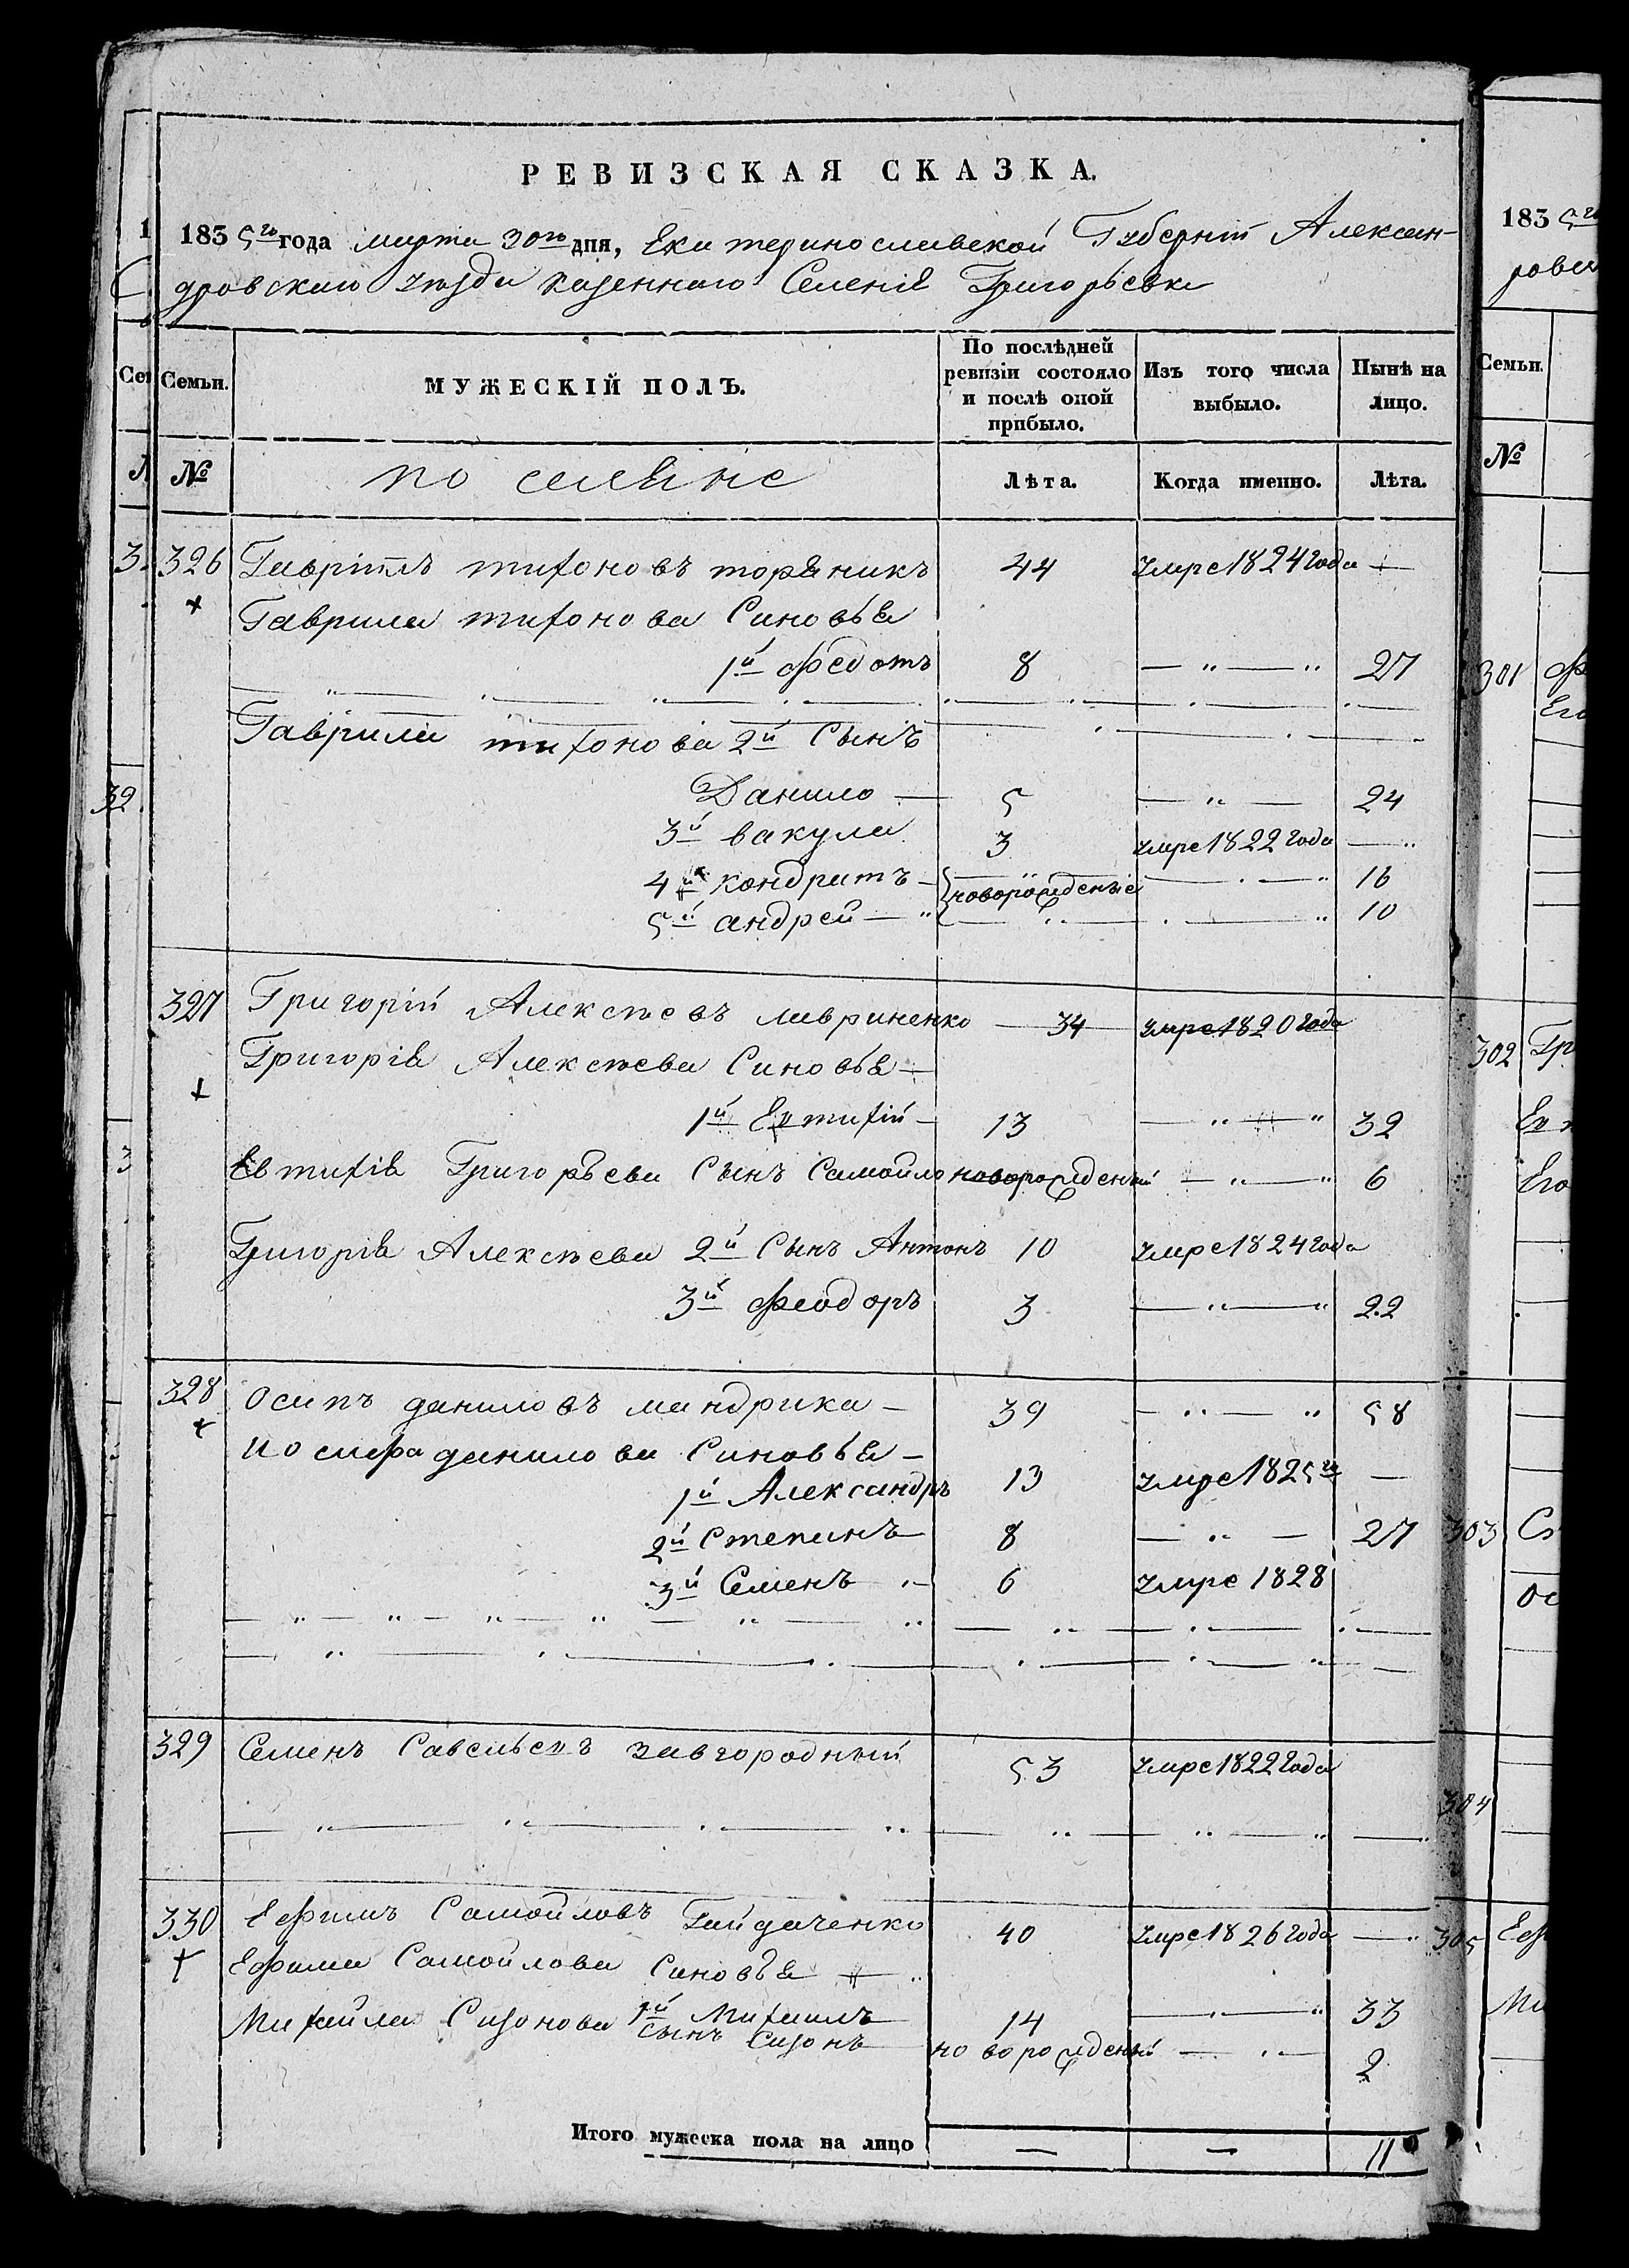 РЕВИЗСКАЯ СКАЗКА.
1835го года марта 30го дня, Екатеринославской Губерніи Алексан-
дровскаго уѣзда казеннаго Селенія Григорьевки
Семьи.
МУЖЕСКІЙ ПОЛЪ.
По послѣдней ревизіи состояло и послѣ оной прибыло.
Изъ того числа выбыло.
Нынѣ на лицо.
№
Лѣта.
Когда именно.
Лѣта.
326 Гаврiилъ тихоновъ торяникъ 44 умре 1824 года —
Гаврила тихонова Синовья
1й Федотъ 8 — „ — „ 27
Гаврила тихонова 2й Сынъ
Данило — 5 — „ — 24
3й вакула 3 умре 1822 года — „
4й кондратъ — новорожденные — „ 16
5й андрей — „ — „ 10
327 Григорій Алексѣевъ лавриненко — 34 умре 1820 года
Григорія Алексѣева Синовья —
1й Евтихій — 13 — „ — „ 32
Евтихія Григорьева Сынъ Самойло новорожденый — „ — „ 6
Григорія Алексѣева 2й Сынъ Антонъ 10 умре 1824 года
3й Феодоръ 3 — „ — „ 22
328 Осипъ даниловъ мандрика — 39 — „ — „ 58
Иосифа данилова Синовья —
1й Александръ 13 умре 1825го —
2й Степанъ 8 — „ — 27
3й Семенъ „ — 6 умре 1828
329 Семенъ Савельевъ завгородный 53 умре 1822 года
330 Ефимъ Самойловъ Гайдаченко 40 умре 1826 года — „
Ефима Самойлова Синовья — „
1й Михаилъ 14 — „ — „ 33
Михайла Сизонова Сынъ Сизонъ новорожденый — „ — 2
Итого мужеска пола на лицо — — 11
1835го
ровск
Семьи.
№
301
302 Гр
303
304
305 Еф